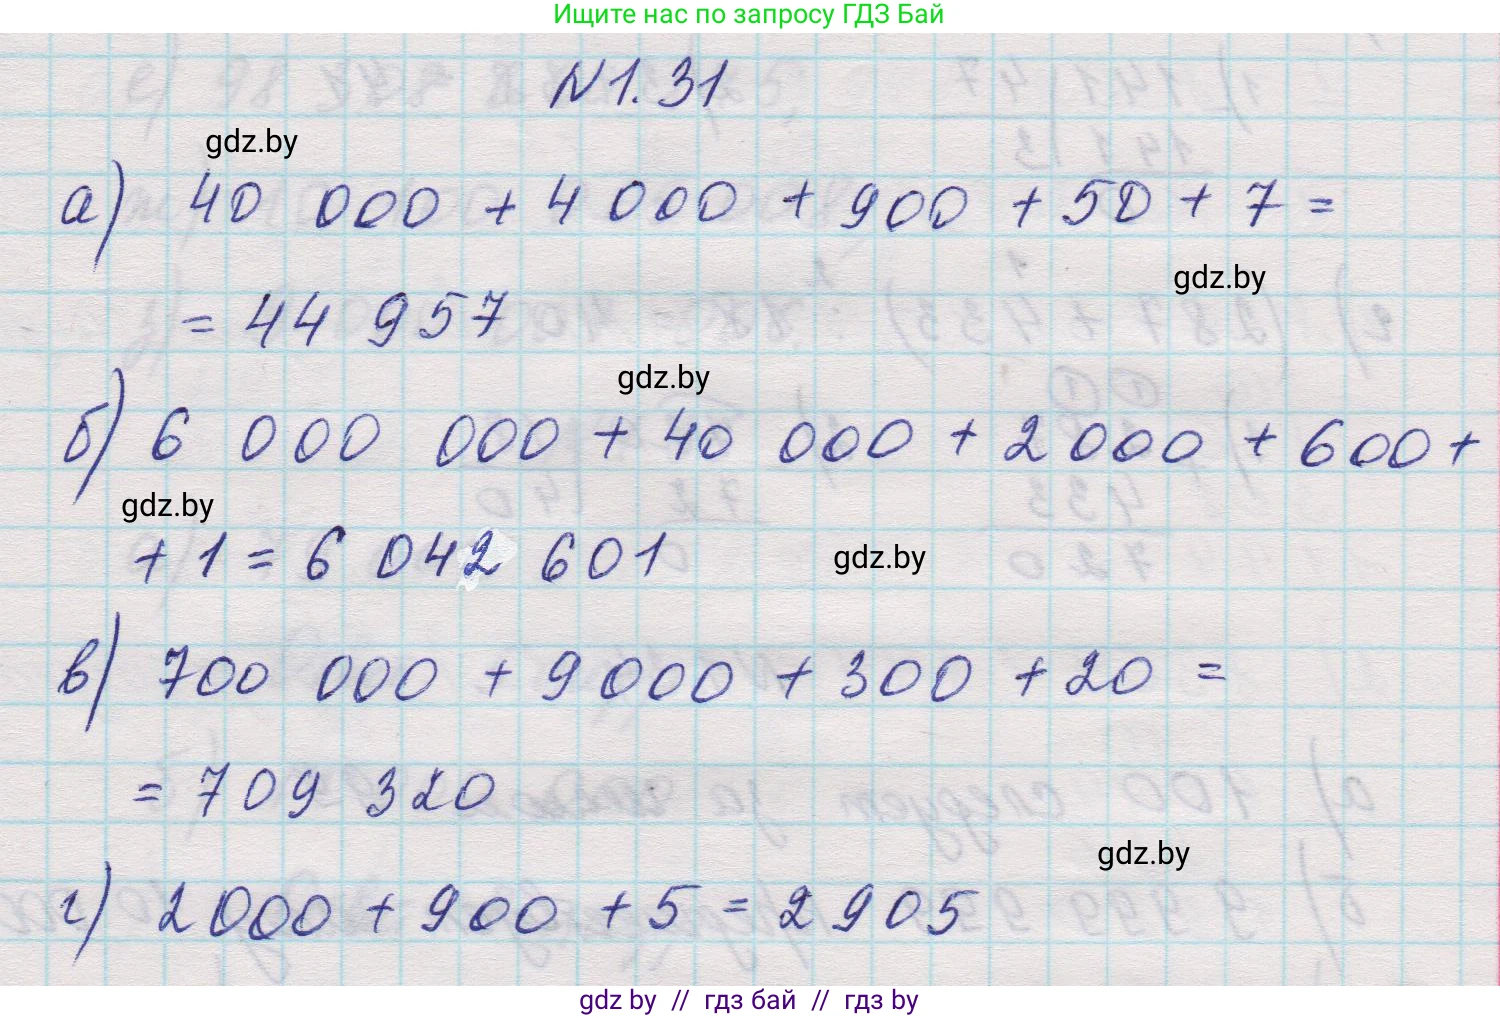 Ищите нас по запросу ГДЗ Бай
N1.31
gdz.by
а) 40 000 + 4 000 + 900 + 50 + 7 =
gdz.by
= 44 957
gdz.by
б) 6 000 000 + 40 000 + 2 000 + 600 +
gdz.by
+ 1 = 6 042 601
gdz.by
в) 700 000 + 9 000 + 300 + 20 =
= 709 320
gdz.by
г) 2 000 + 900 + 5 = 2 905
gdz by // гдз бай // гдз by